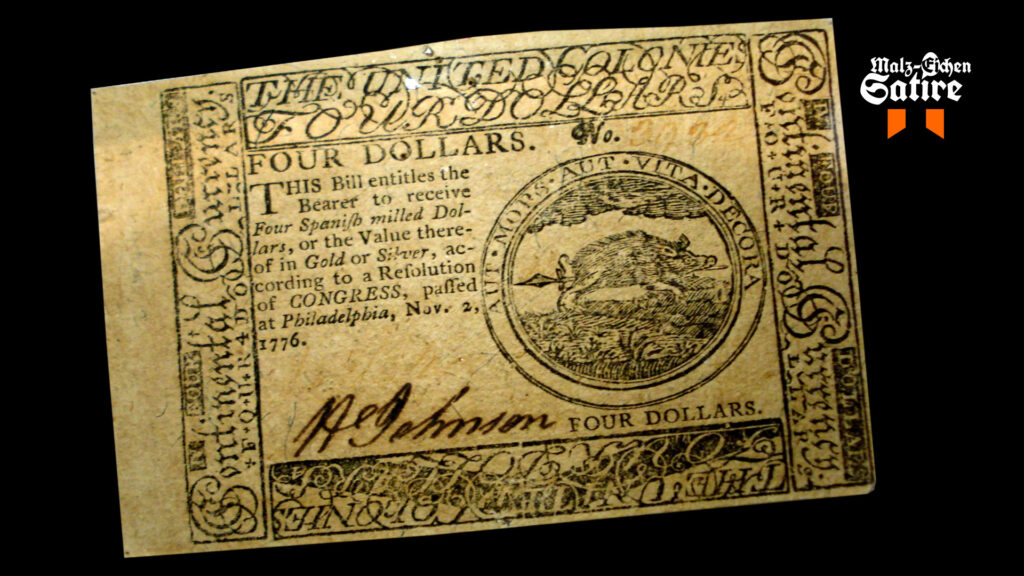 THE UNITED COLONIES
FOUR DOLLARS
FOUR DOLLARS. No.
THIS Bill entitles the
Bearer to receive
Four Spaniſh milled Dol-
lars, or the Value there-
of in Gold or Silver, ac-
cording to a Reſolution
of CONGRESS, paſſed
at Philadelphia, Nov. 2,
1776.
AUT · MORS · AUT · VITA · DECORA
H Johnson
FOUR DOLLARS.
Continental Currency
Continental Currency
Malz-Eichen
Satire